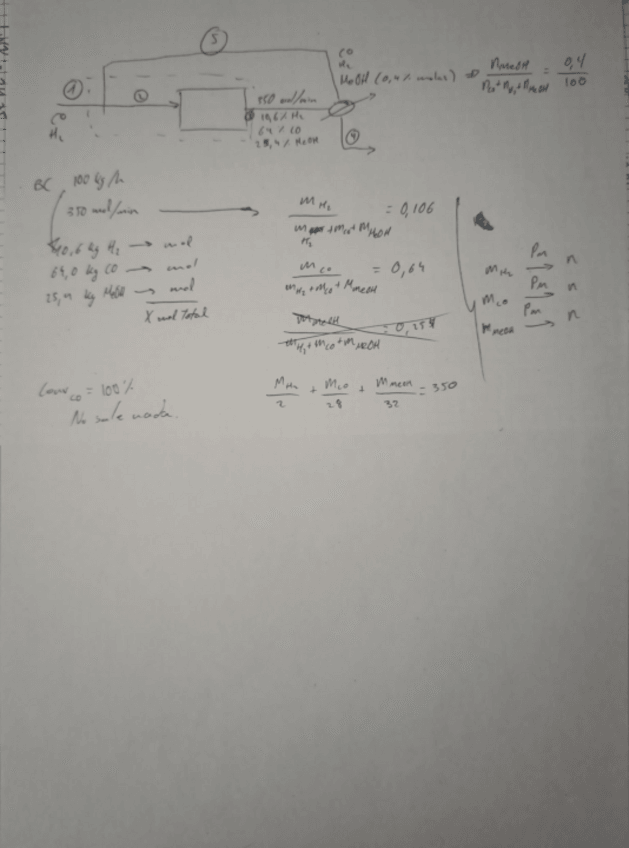 5
CO
H₂
MeOH (0,4 % molar) ⇒ n_MeOH / (n_CO + n_H₂ + n_MeOH) = 0,4 / 100
1
CO
H₂
2
350 mol/min
10,6 % H₂
64 % CO
25,4 % MeOH
4
BC 100 kg/h
350 mol/min
10,6 kg H₂ → mol
64,0 kg CO → mol
25,4 kg MeOH → mol
X mol Total
m_H₂ / (m_H₂ + m_CO + m_MeOH) = 0,106
m_CO / (m_H₂ + m_CO + m_MeOH) = 0,64
m_MeOH / (m_H₂ + m_CO + m_MeOH) = 0,254
m_H₂ → Pm → n
m_CO → Pm → n
m_MeOH → Pm → n
Conv_CO = 100%
No sale nada.
m_H₂ / 2 + m_CO / 28 + m_MeOH / 32 = 350